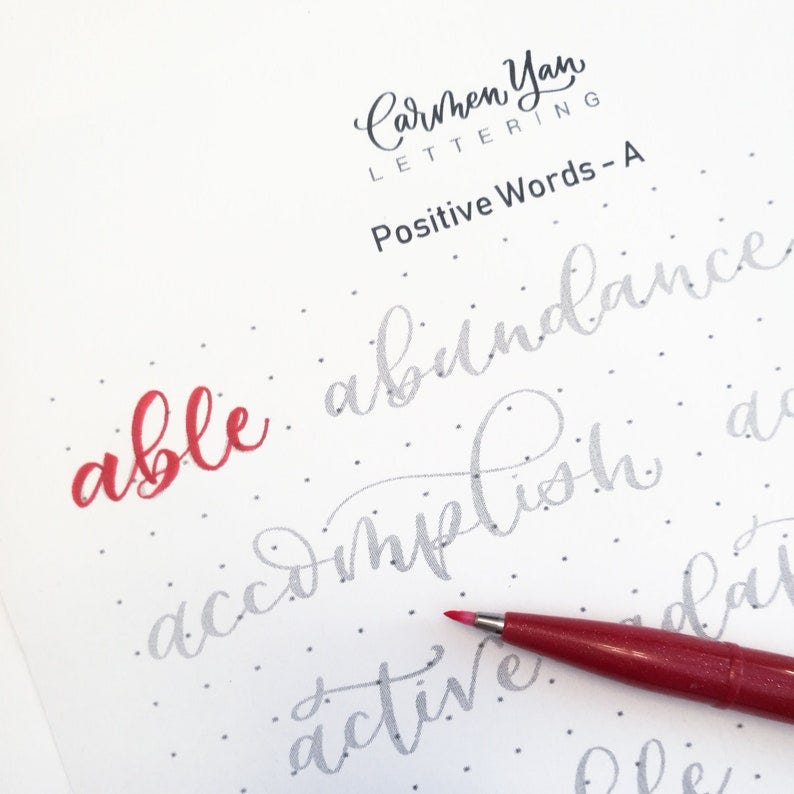 Carmen Yan
LETTERING
Positive Words - A
able abundance
accomplish
active